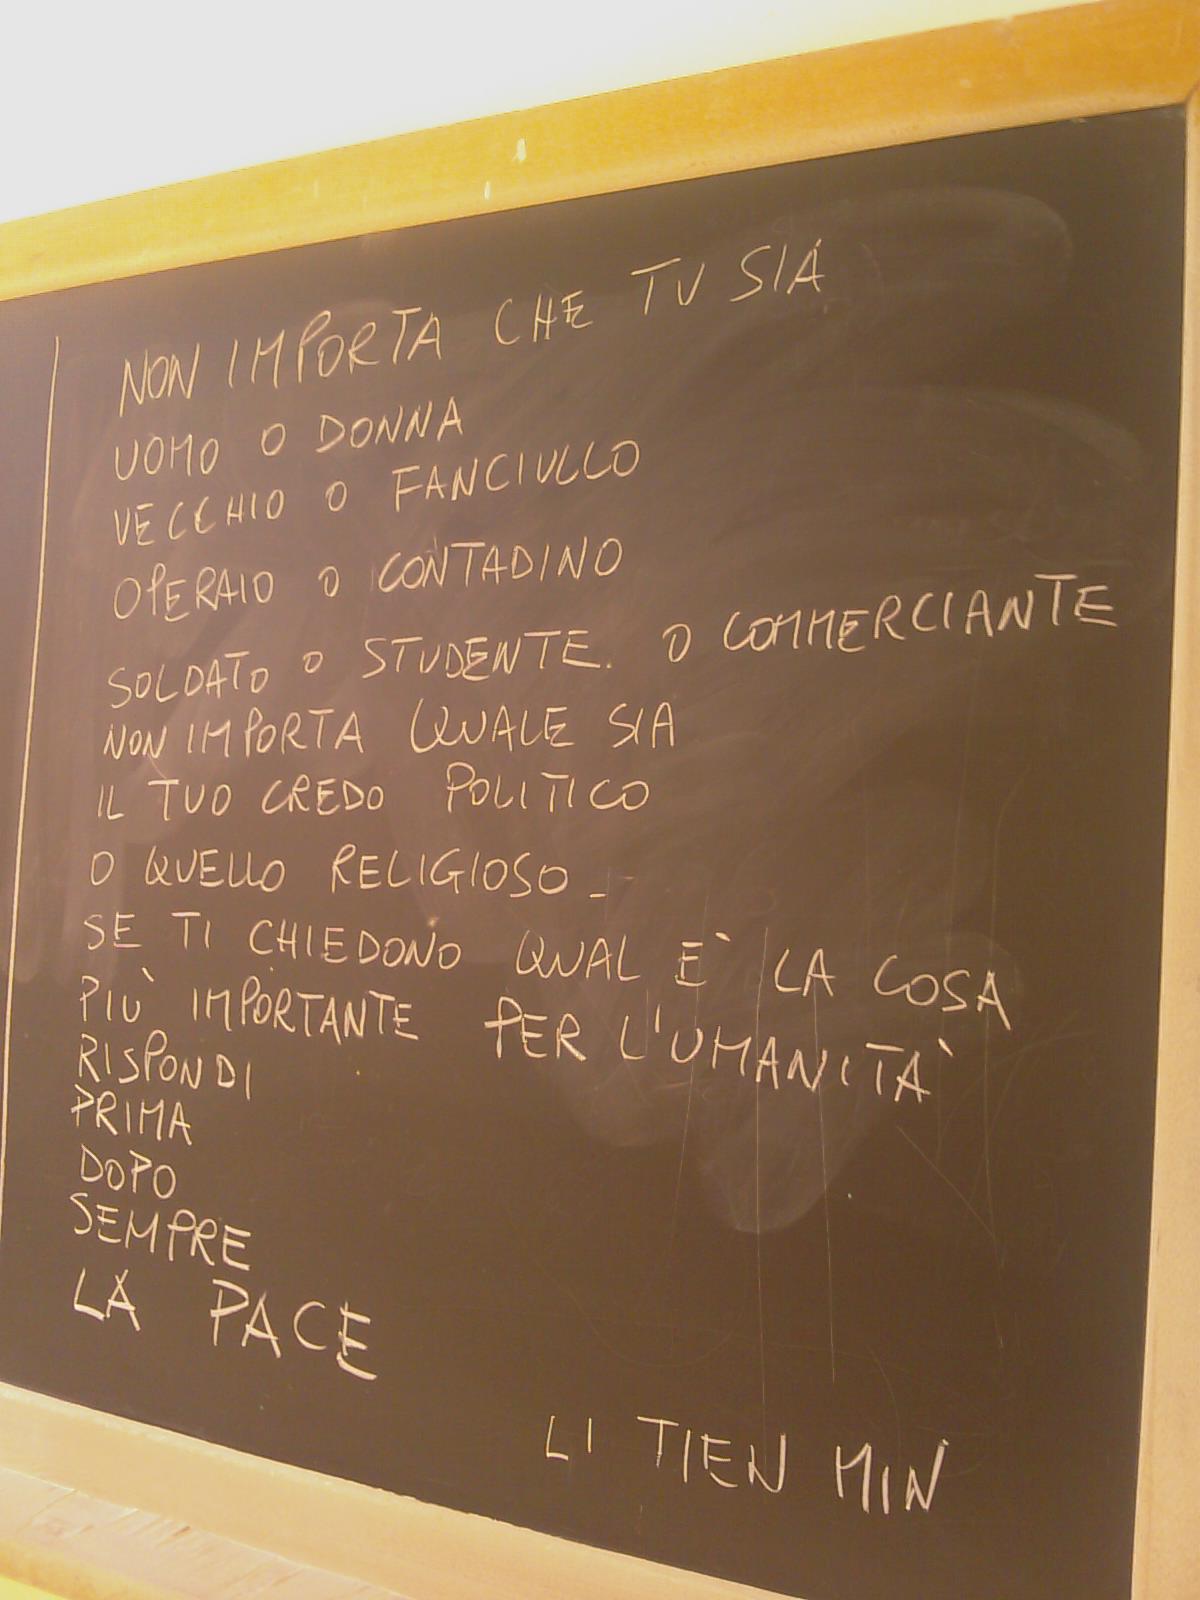 NON IMPORTA CHE TU SIA
UOMO O DONNA
VECCHIO O FANCIULLO
OPERAIO O CONTADINO
SOLDATO O STUDENTE. O COMMERCIANTE
NON IMPORTA QUALE SIA
IL TUO CREDO POLITICO
O QUELLO RELIGIOSO_
SE TI CHIEDONO QUAL E` LA COSA
PIU` IMPORTANTE PER L'UMANITA`
RISPONDI
PRIMA
DOPO
SEMPRE
LA PACE
LI TIEN MIN